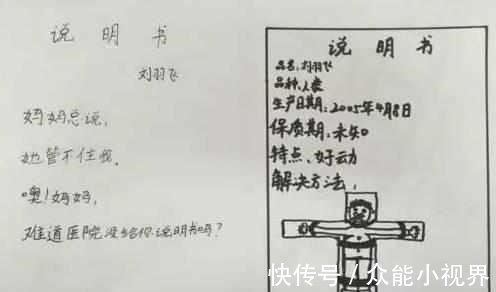 说明书
刘羽飞
妈妈总说，
她管不住我。
噢！妈妈，
难道医院没给你说明书吗？
说明书
品名：刘羽飞
品种：人类
生产日期：2005年4月8日
保质期：未知
特点：好动
解决方法：
快传号/众能小视界